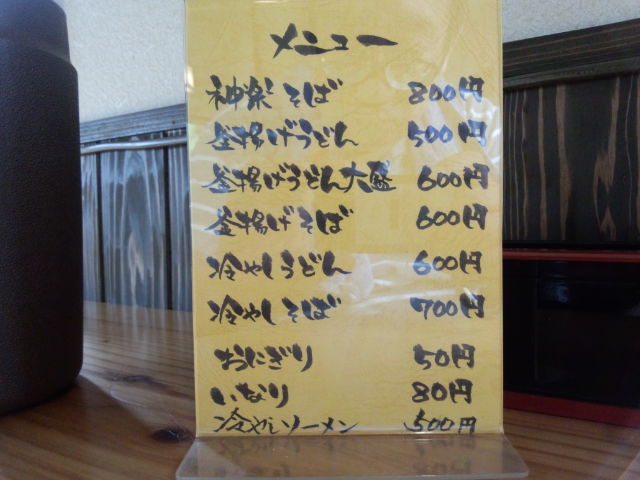 メニュー
神楽そば 800円
釜揚げうどん 500円
釜揚げうどん大盛 600円
釜揚げそば 600円
冷やしうどん 600円
冷やしそば 700円
おにぎり 50円
いなり 80円
冷やしソーメン 500円